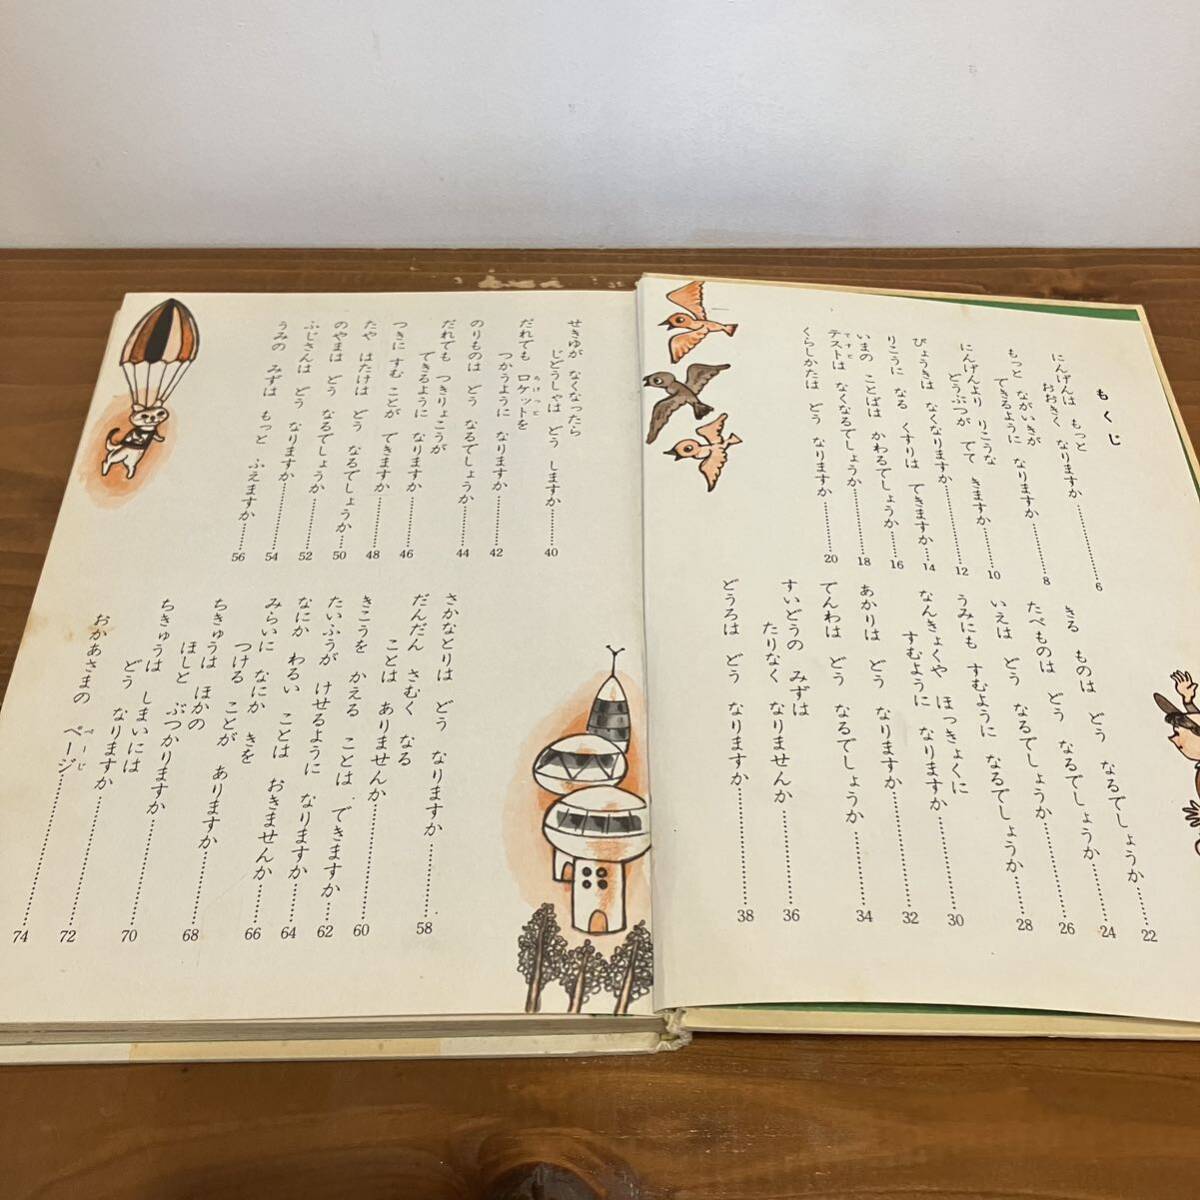 もくじ
にんげんは もっと
おおきく なりますか………6
もっと ながいきが
できるように なりますか………8
にんげんより りこうな
どうぶつが でて きますか………10
びょうきは なくなりますか………12
りこうに なる くすりは できますか……14
いまの ことばは かわるでしょうか……16
テストは なくなるでしょうか………18
てすと
くらしかたは どう なりますか………20
きる ものは どう なるでしょうか………22
たべものは どう なるでしょうか………24
いえは どう なるでしょうか………26
うみにも すむように なるでしょうか………28
なんきょくや ほっきょくに
すむように なりますか………30
あかりは どう なりますか………32
でんわは どう なるでしょうか………34
すいどうの みずは
たりなく なりませんか………36
どうろは どう なりますか………38
せきゆが なくなったら
じどうしゃは どう しますか……40
だれでも ロケットを
ろけっと
つかうように なりますか……42
のりものは どう なるでしょうか……44
だれでも つきりょこうが
できるように なりますか……46
つきに すむ ことが できますか……48
たや はたけは どう なるでしょうか……50
のやまは どう なるでしょうか……52
ふじさんは どう なりますか………54
うみの みずは もっと ふえますか……56
さかなとりは どう なりますか………58
だんだん さむく なる
ことは ありませんか………60
きこうを かえる ことは できますか……62
たいふうが けせるように なりますか……64
なにか わるい ことは おきませんか……66
みらいに なにか きを
つける ことが ありますか………68
ちきゅうは ほかの
ほしと ぶつかりますか………70
ちきゅうは しまいには
どう なりますか………72
おかあさまの ページ………74
ぺーじ